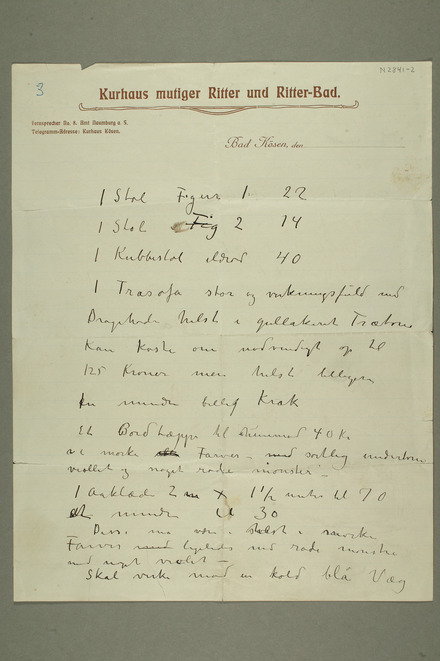 3
N 2841-2
Kurhaus mutiger Ritter und Ritter-Bad.
Fernsprecher No. 8. Amt Naumburg a. S.
Telegramm-Adresse: Kurhaus Kösen.
Bad Kösen, den
1 Stol Figur 1 22
1 Stol Fig 2 14
1 Kubbestol ildrød 40
1 Træsofa stor og virkningsfuld med
Dragehoder helst i gullakeret Træ
kan koste om nødvendigt op til
125 Kroner men helst billigere
En mindre billig Krak
Et Bordtæppe til 40 Kr
i mørke Farver – med sortlig
viollet og noget røde mønster –
1 Aaklæde 2 m X 1 1/2 meter til 70
et mindre til 30
– Disse må være helst i mørke
Farver ligeledes med røde mønstre
med noget violet –
Skal virke mod en kold blå Væg